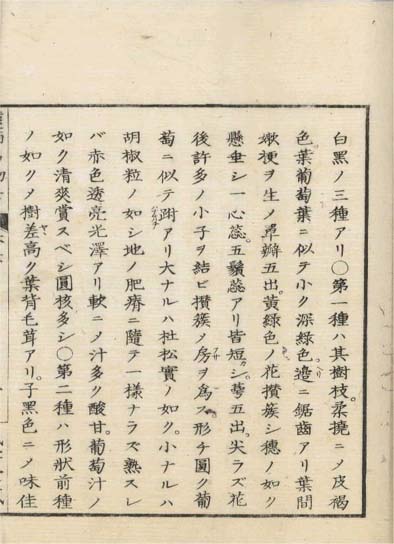 白黒ノ三種アリ〇第一種ハ其樹枝柔撓ニㄨ皮褐
色葉葡萄葉ニ似テ小ク深緑色邉ニ鋸齒アリ葉間
嫩梗ヲ生ノ單瓣五出黄緑色ノ花攅簇シ穗ノ如ク
懸垂シ一心蕊五鬚蕊アリ皆短シ萼五出尖ラズ花
後許多ノ小子ヲ結ビ攅簇ㄨ房ヲ為ス形チ圓ク葡
萄ニ似テ跗アリ大ナルハ杜松實ノ如ク小ナルハ
胡椒粒ノ如シ地ノ肥瘠ニ隨テ一様ナラズ熟スレ
バ赤色透亮光澤アリ軟ニㄨ汁多ク酸甘葡萄汁ノ
如ク清爽賞スベシ圓核多シ〇第二種ハ形狀前種
ノ如クㄨ樹差高ク葉背毛茸アリ子黒色ニㄨ味佳